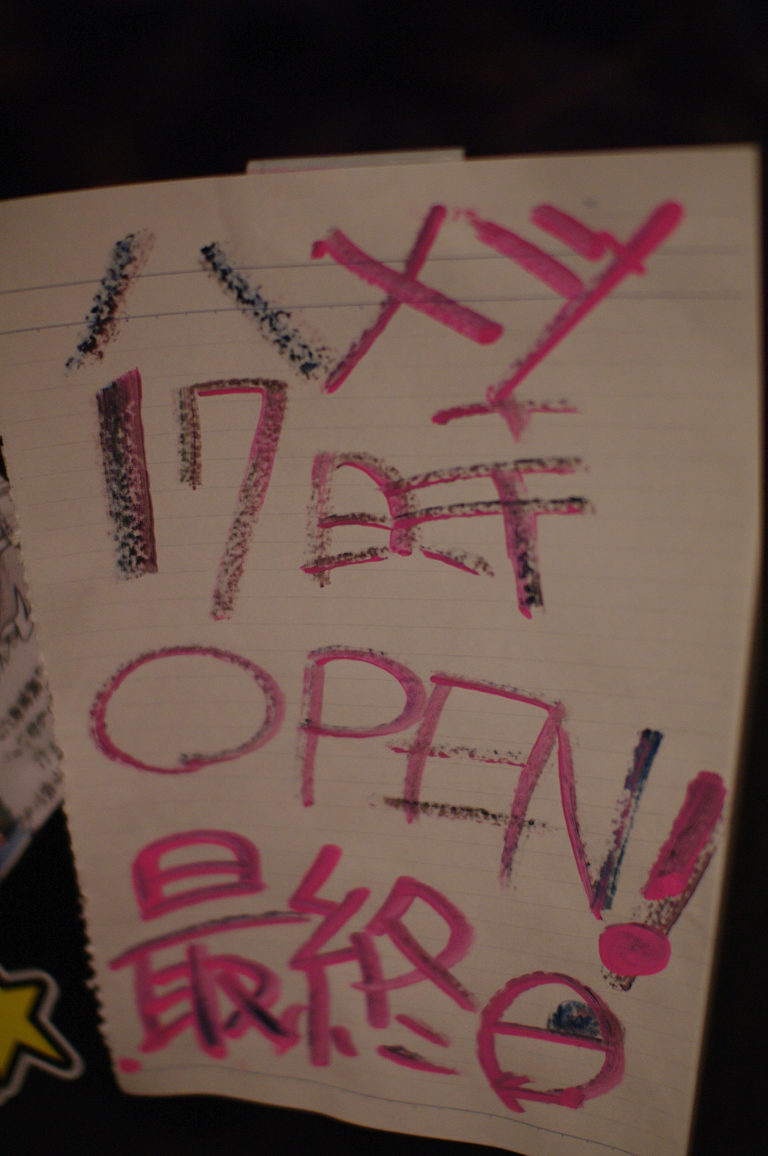 ハメツ
17時
OPEN!
最終日